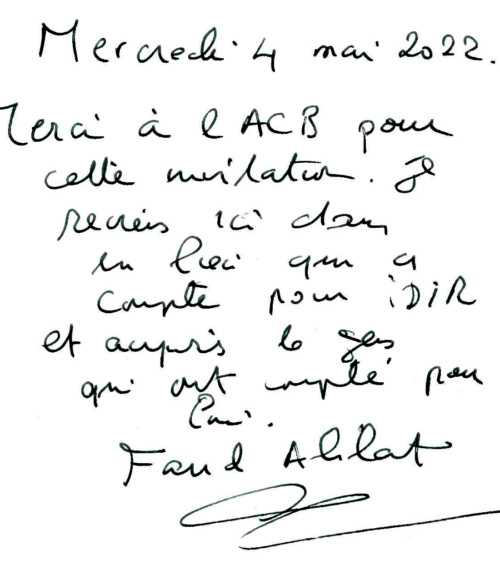 Mercredi 4 mai 2022.
Merci à l ACB pour
cette invitation. Je
reviens ici dans
un lieu qui a
compté pour iDiR
et auprès de gens
qui ont compté pour
lui.
Farid Alilat